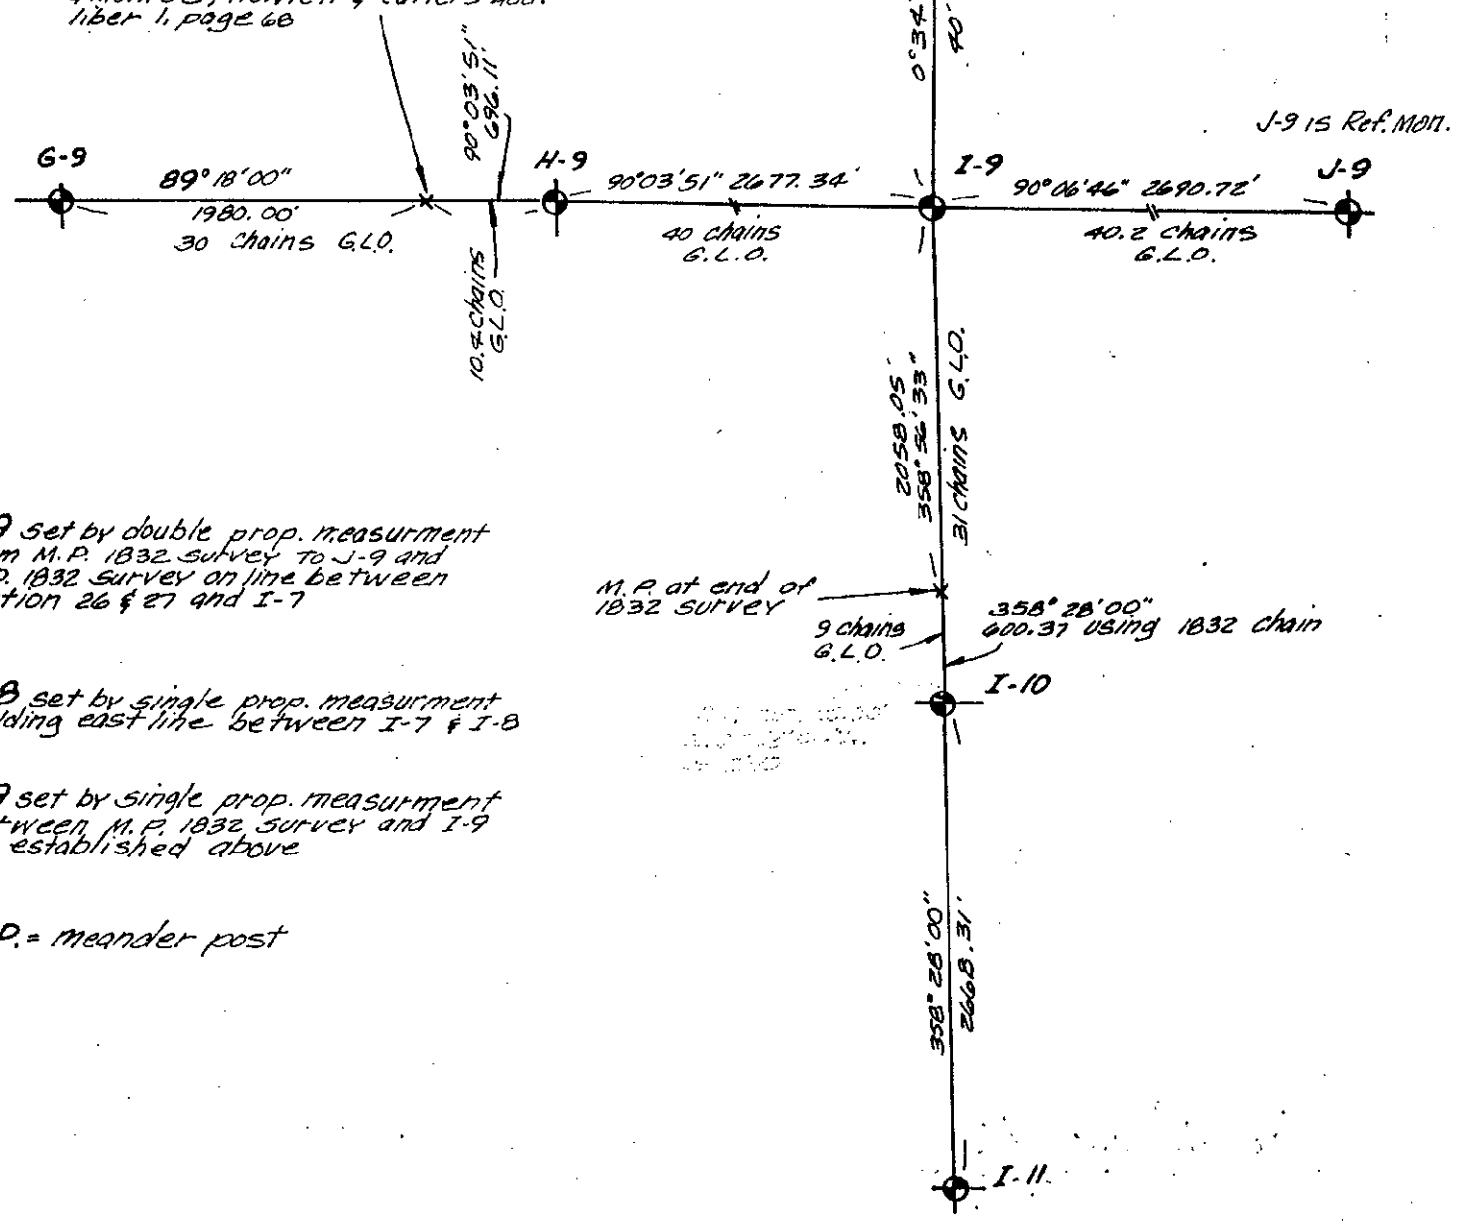 liber 1, page 68
0°34'
40'
90°03'51"
696.11'
J-9 is Ref. Mon.
G-9
89°18'00"
1980.00'
30 chains G.L.O.
H-9
90°03'51" 2677.34'
40 chains
G.L.O.
I-9
90°06'46" 2690.72'
40.2 chains
G.L.O.
J-9
10.4 chains
G.L.O.
2058.05'
358°56'33"
31 chains G.L.O.
9 set by double prop. measurment
m M.P. 1832 survey to J-9 and
P. 1832 survey on line between
tion 26 & 27 and I-7
M.P. at end of
1832 survey
9 chains
G.L.O.
358°28'00"
600.37 using 1832 chain
I-10
8 set by single prop. measurment
lding east line between I-7 & I-8
9 set by single prop. measurment
tween M.P. 1832 survey and I-9
established above
P. = meander post
358°28'00"
2668.31'
I-11